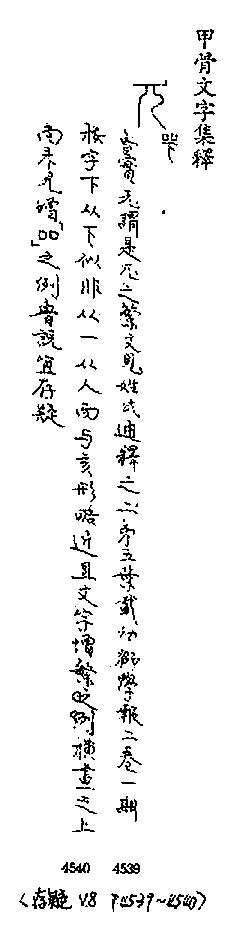 甲骨文字集釋
魯實先謂是兀之繁文見姓氏通釋之二第五葉載幼獅學報二卷一期
按字下从下似非从一从人而与亥形略近且文字增繁之例橫畫之上
尚未見增「口口」之例魯說宜存疑
4540 4539
(存疑 V.8 P4539~4540)